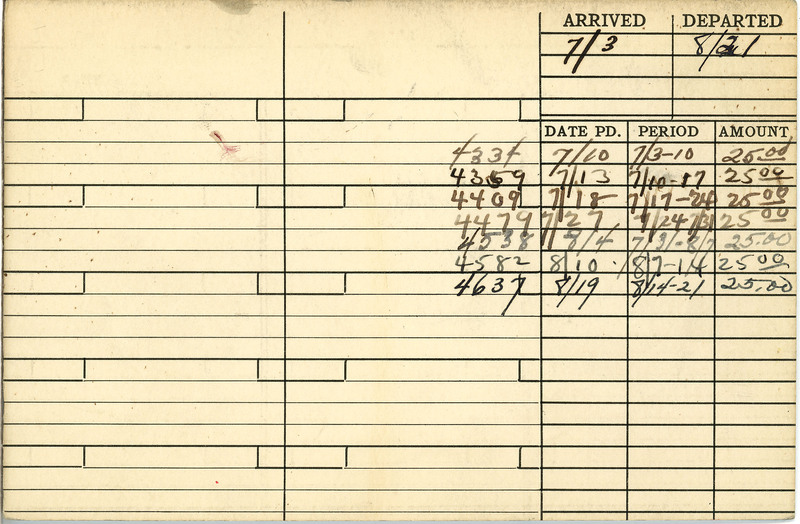 ARRIVED DEPARTED
7/3 8/21
DATE PD. PERIOD AMOUNT
4334 7/10 7/3-10 25.00
4359 7/13 7/10-17 25.00
4409 7/18 7/17-24 25.00
4479 7/27 7/24-7/31 25.00
4538 8/4 7/31-8/7 25.00
4582 8/10 8/7-14 25.00
4637 8/19 8/14-21 25.00